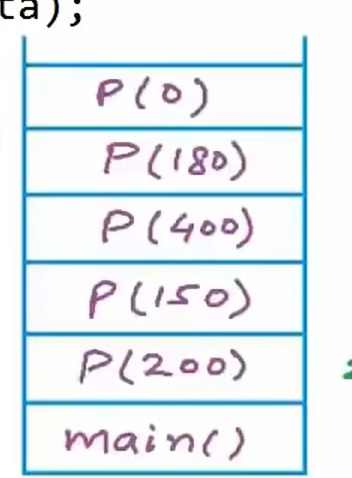 ta);
P(0)
P(180)
P(400)
P(150)
P(200)
main()